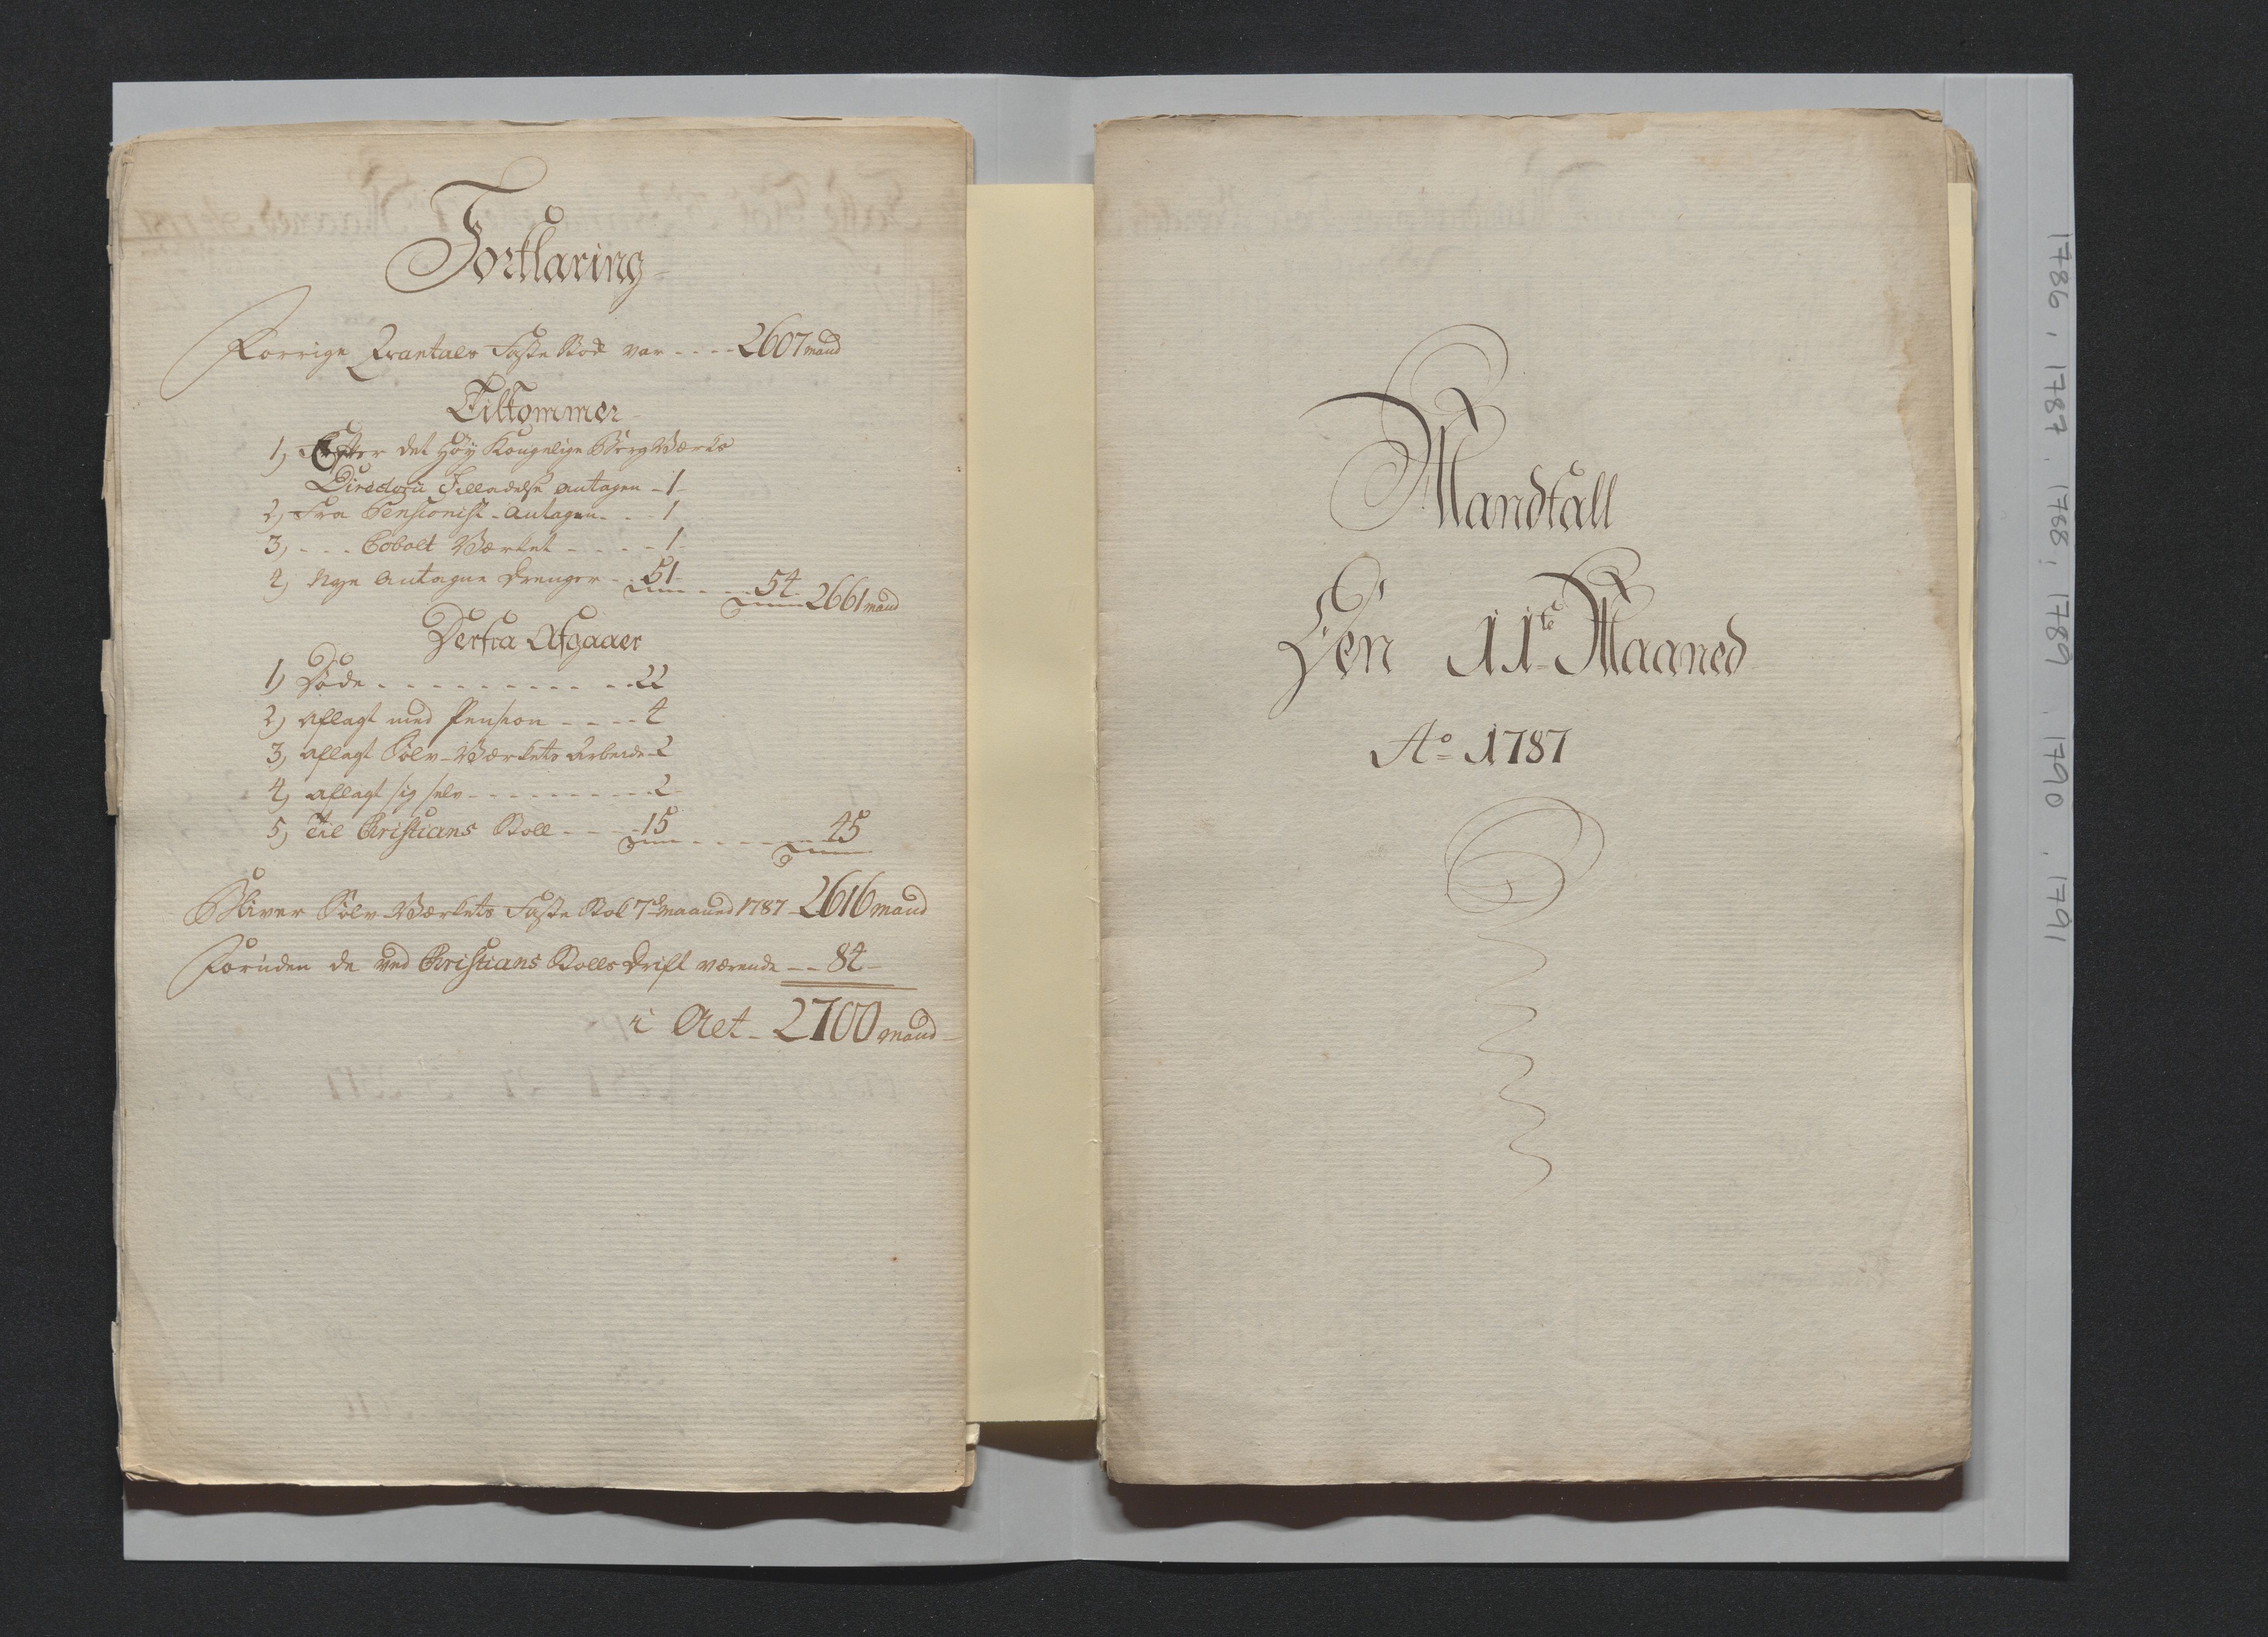 Forklaring
Forrige Qvartals Faste Stok var - - - - 2607 mand
Tilkommer
1) Efter det Høy Kongelige Berg Værks
Directorii Tilladelse antagen - 1
2) Fra Pensionist - antagen - - - 1
3) - - - Cobolt Værket - - - - 1
4) Nye Antagne Drenger - - 51 - - - - 54 - 2661 mand
Derfra Afgaaer
1) Døde - - - - - - - - - - - 22
2) Aflagt med Pension - - - - 4
3) Aflagt Sølv-Værkets Arbeide - 2
4) Aflagt sig selv - - - - - - - - - 2
5) til Christians Stoll - - - 15 - - - - - 45
Bliver Sølv-Værkets Faste Stok 7de Maaned 1787 - 2616 mand
Foruden de ved Christians Stolls Drift værende - - 84 -
i Alt - 2700 mand
Mandtall
Den 11te Maaned
Ao 1787
1786, 1787. 1788, 1789. 1790. 1791